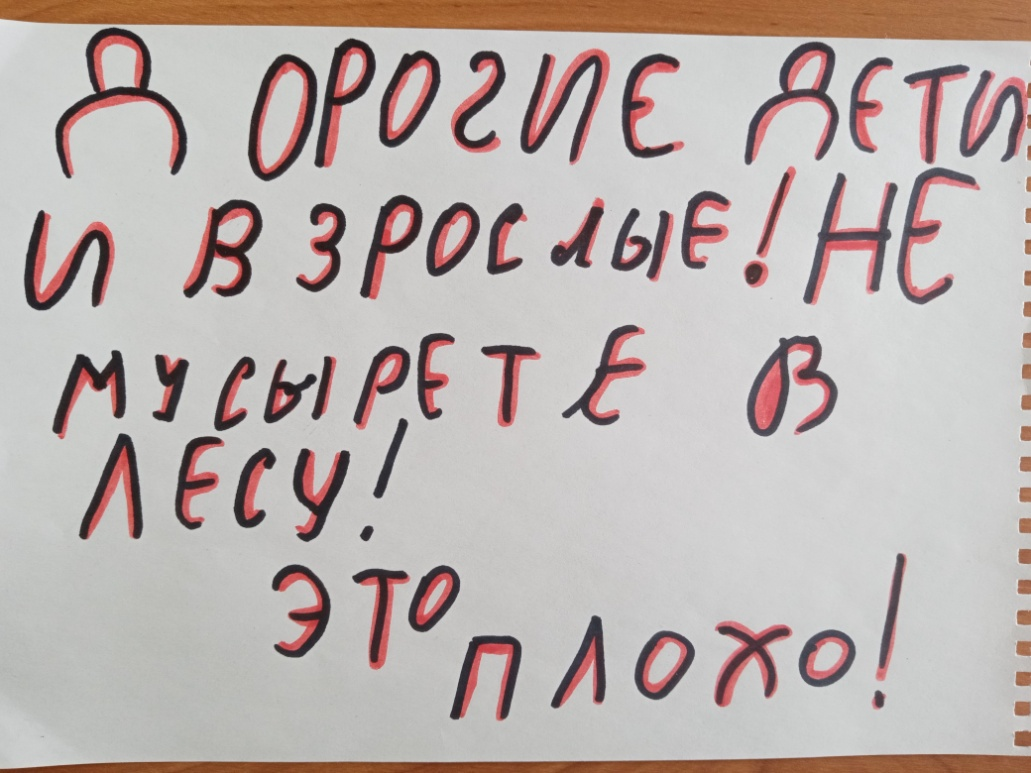 ДОРОГИЕ ДЕТИ
И ВЗРОСЛЫЕ! НЕ
МУСЫРЕТЕ В
ЛЕСУ!
ЭТО ПЛОХО!